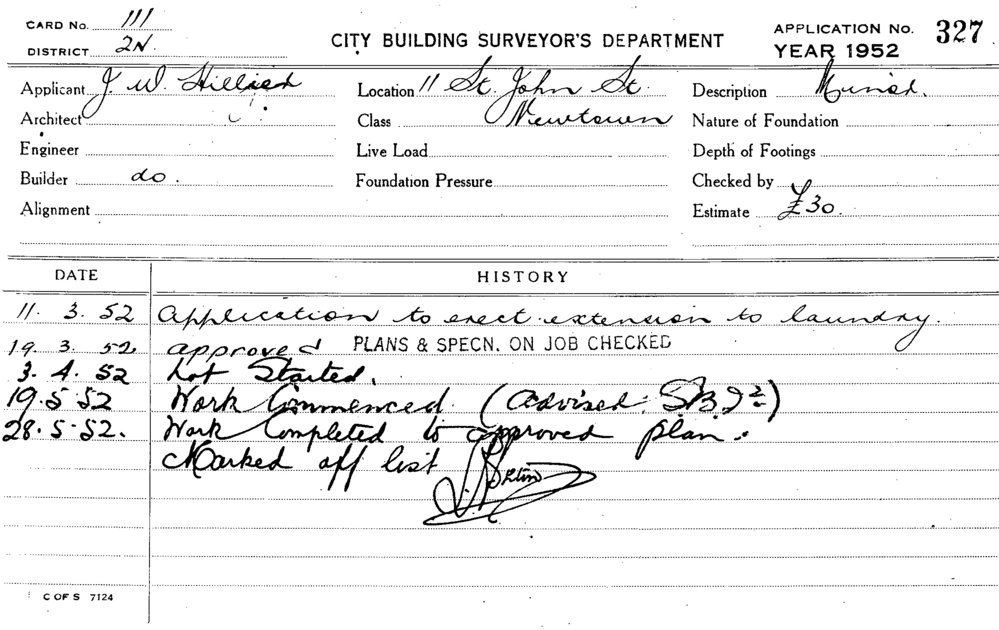 CARD No. 111
DISTRICT 2N.
CITY BUILDING SURVEYOR'S DEPARTMENT
APPLICATION No. 327
YEAR 1952
Applicant J. W.
Location 11 St. John St.
Description
Architect
Class Newtown
Nature of Foundation
Engineer
Live Load
Depth of Footings
Builder do.
Foundation Pressure
Checked by
Alignment
Estimate £30.
DATE HISTORY
11. 3. 52 Application to erect extension to laundry.
19. 3. 52 approved PLANS & SPECN. ON JOB CHECKED
3. 4. 52 Not Started.
19. 5 52 Work Commenced. (advised.
28. 5. 52. Work Completed to approved plan.
Marked off list
C OF S 7124